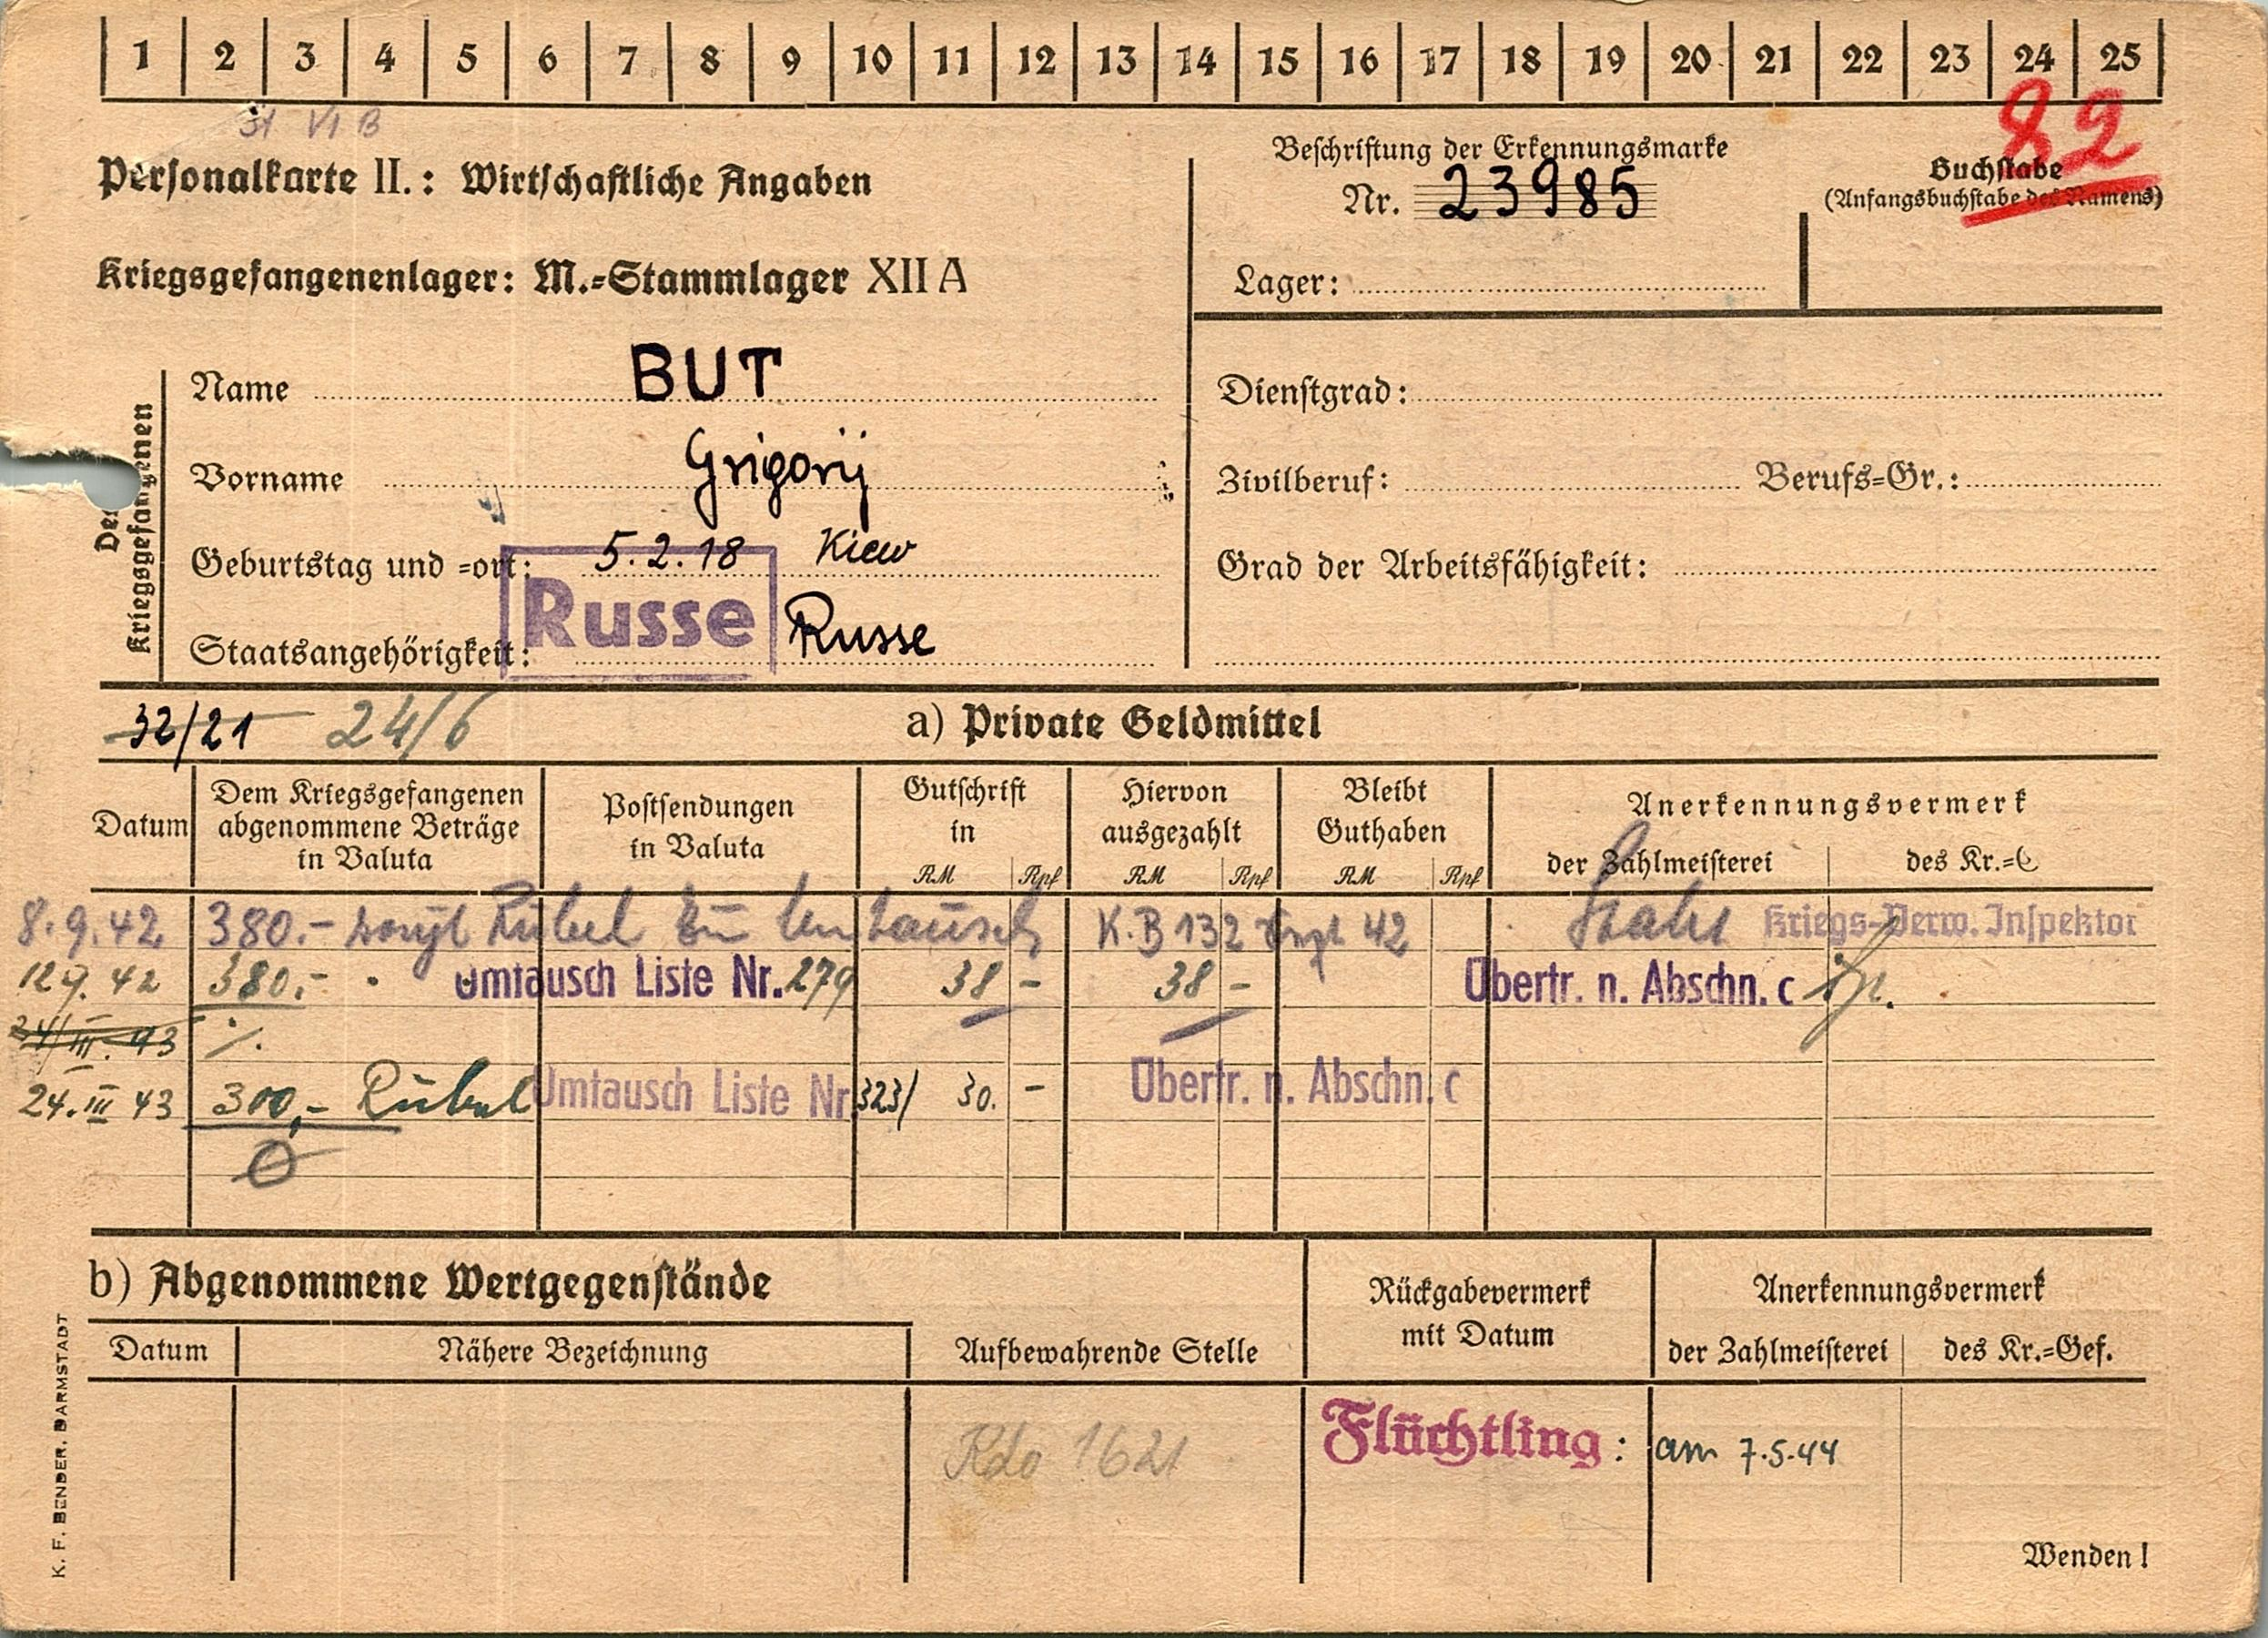 1 2 3 4 5 6 7 8 9 10 11 12 13 14 15 16 17 18 19 20 21 22 23 24 25
82
St VI B
Personalkarte II.: Wirtschaftliche Angaben
Beschriftung der Erkennungsmarke
Nr. 23985
Buchstabe
(Anfangsbuchstabe des Namens)
Kriegsgefangenenlager: M.-Stammlager XII A
Lager:
Des Kriegsgefangenen
Name BUT
Vorname Grigorij
Geburtstag und -ort: 5.2.18 Kiew
Staatsangehörigkeit: Russe Russe
Dienstgrad:
Zivilberuf: Berufs-Gr.:
Grad der Arbeitsfähigkeit:
32/21 24/6
a) Private Geldmittel
Datum
Dem Kriegsgefangenen abgenommene Beträge in Valuta
Postsendungen in Valuta
Gutschrift in RM Rpf
Hiervon ausgezahlt RM Rpf
Bleibt Guthaben RM Rpf
Anerkennungsvermerk
der Zahlmeisterei des Kr.-G
8.9.42 380.- Rubel Umtausch K.B 132 42 Kriegs-Verw. Inspektor
12.9.42 380,- Umtausch Liste Nr. 279 38 - 38 - Übertr. n. Abschn. c
24/III. 43 ./.
24. III 43 300,- Rubel Umtausch Liste Nr 323/ 30. - Übertr. n. Abschn. c
0
b) Abgenommene Wertgegenstände
Datum
Nähere Bezeichnung
Aufbewahrende Stelle
Rückgabevermerk mit Datum
Anerkennungsvermerk
der Zahlmeisterei des Kr.-Gef.
Kdo 1621
Flüchtling: am 7.5.44
Wenden!
K. F. BENDER, DARMSTADT